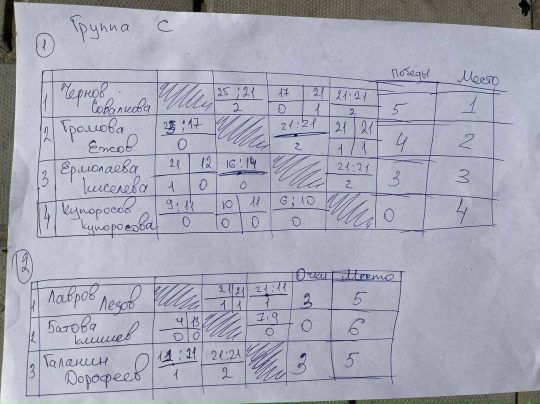 Группа С
1
Победы Место
1 Чернов Совалкова 25:21 2 17 21 0 1 21:21 2 5 1
2 Громова Ежов 17 0 21:21 2 21 21 1 1 4 2
3 Ермолаева Киселева 21 12 1 0 16:14 0 21:21 2 3 3
4 Купоросов Купоросова 9:11 0 10 11 0 0 6:10 0 0 4
2
Очки Место
1 Лавров Лезов 21 21 1 1 21:11 1 3 5
2 Батова Климиев 4 13 0 0 7:9 0 0 6
3 Галанин Дорофеев 21 1 21:21 2 3 5